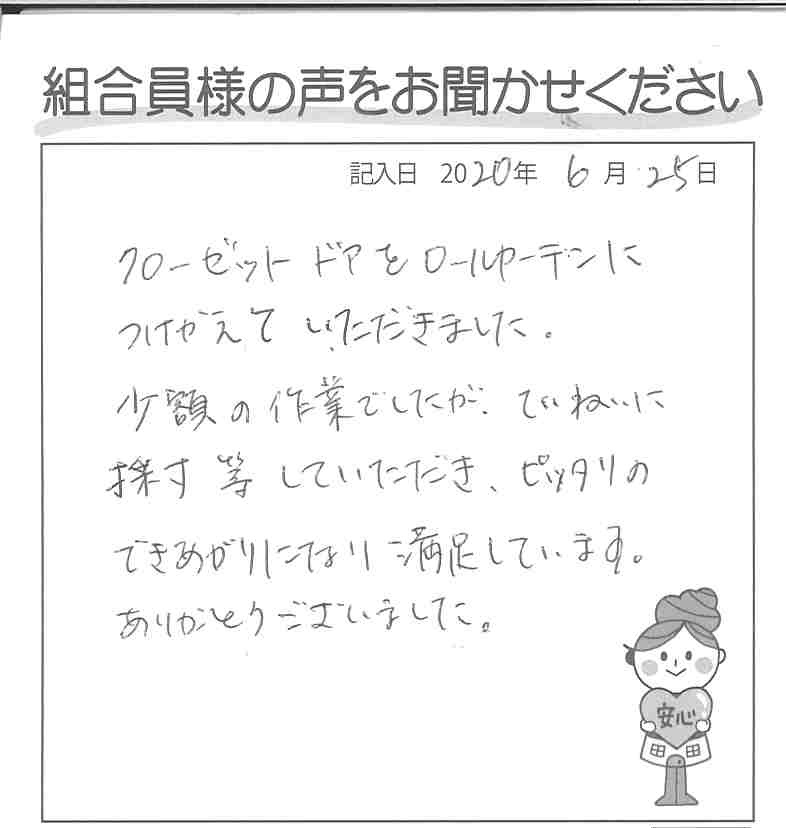 組合員様の声をお聞かせください
記入日 2020年 6月 25日
クローゼットドアをロールカーテンに
つけかえていただきました。
少額の作業でしたが、ていねいに
採寸等していただき、ピッタリの
できあがりになり満足しています。
ありがとうございました。
安心